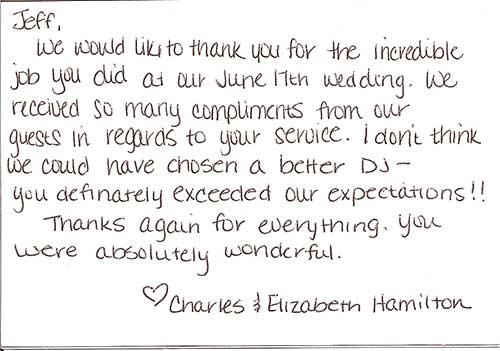 Jeff,
We would like to thank you for the incredible
job you did at our June 17th wedding. We
received so many compliments from our
guests in regards to your service. I don't think
we could have chosen a better DJ -
you definately exceeded our expectations!!
Thanks again for everything. You
were absolutely wonderful.
♡ Charles & Elizabeth Hamilton